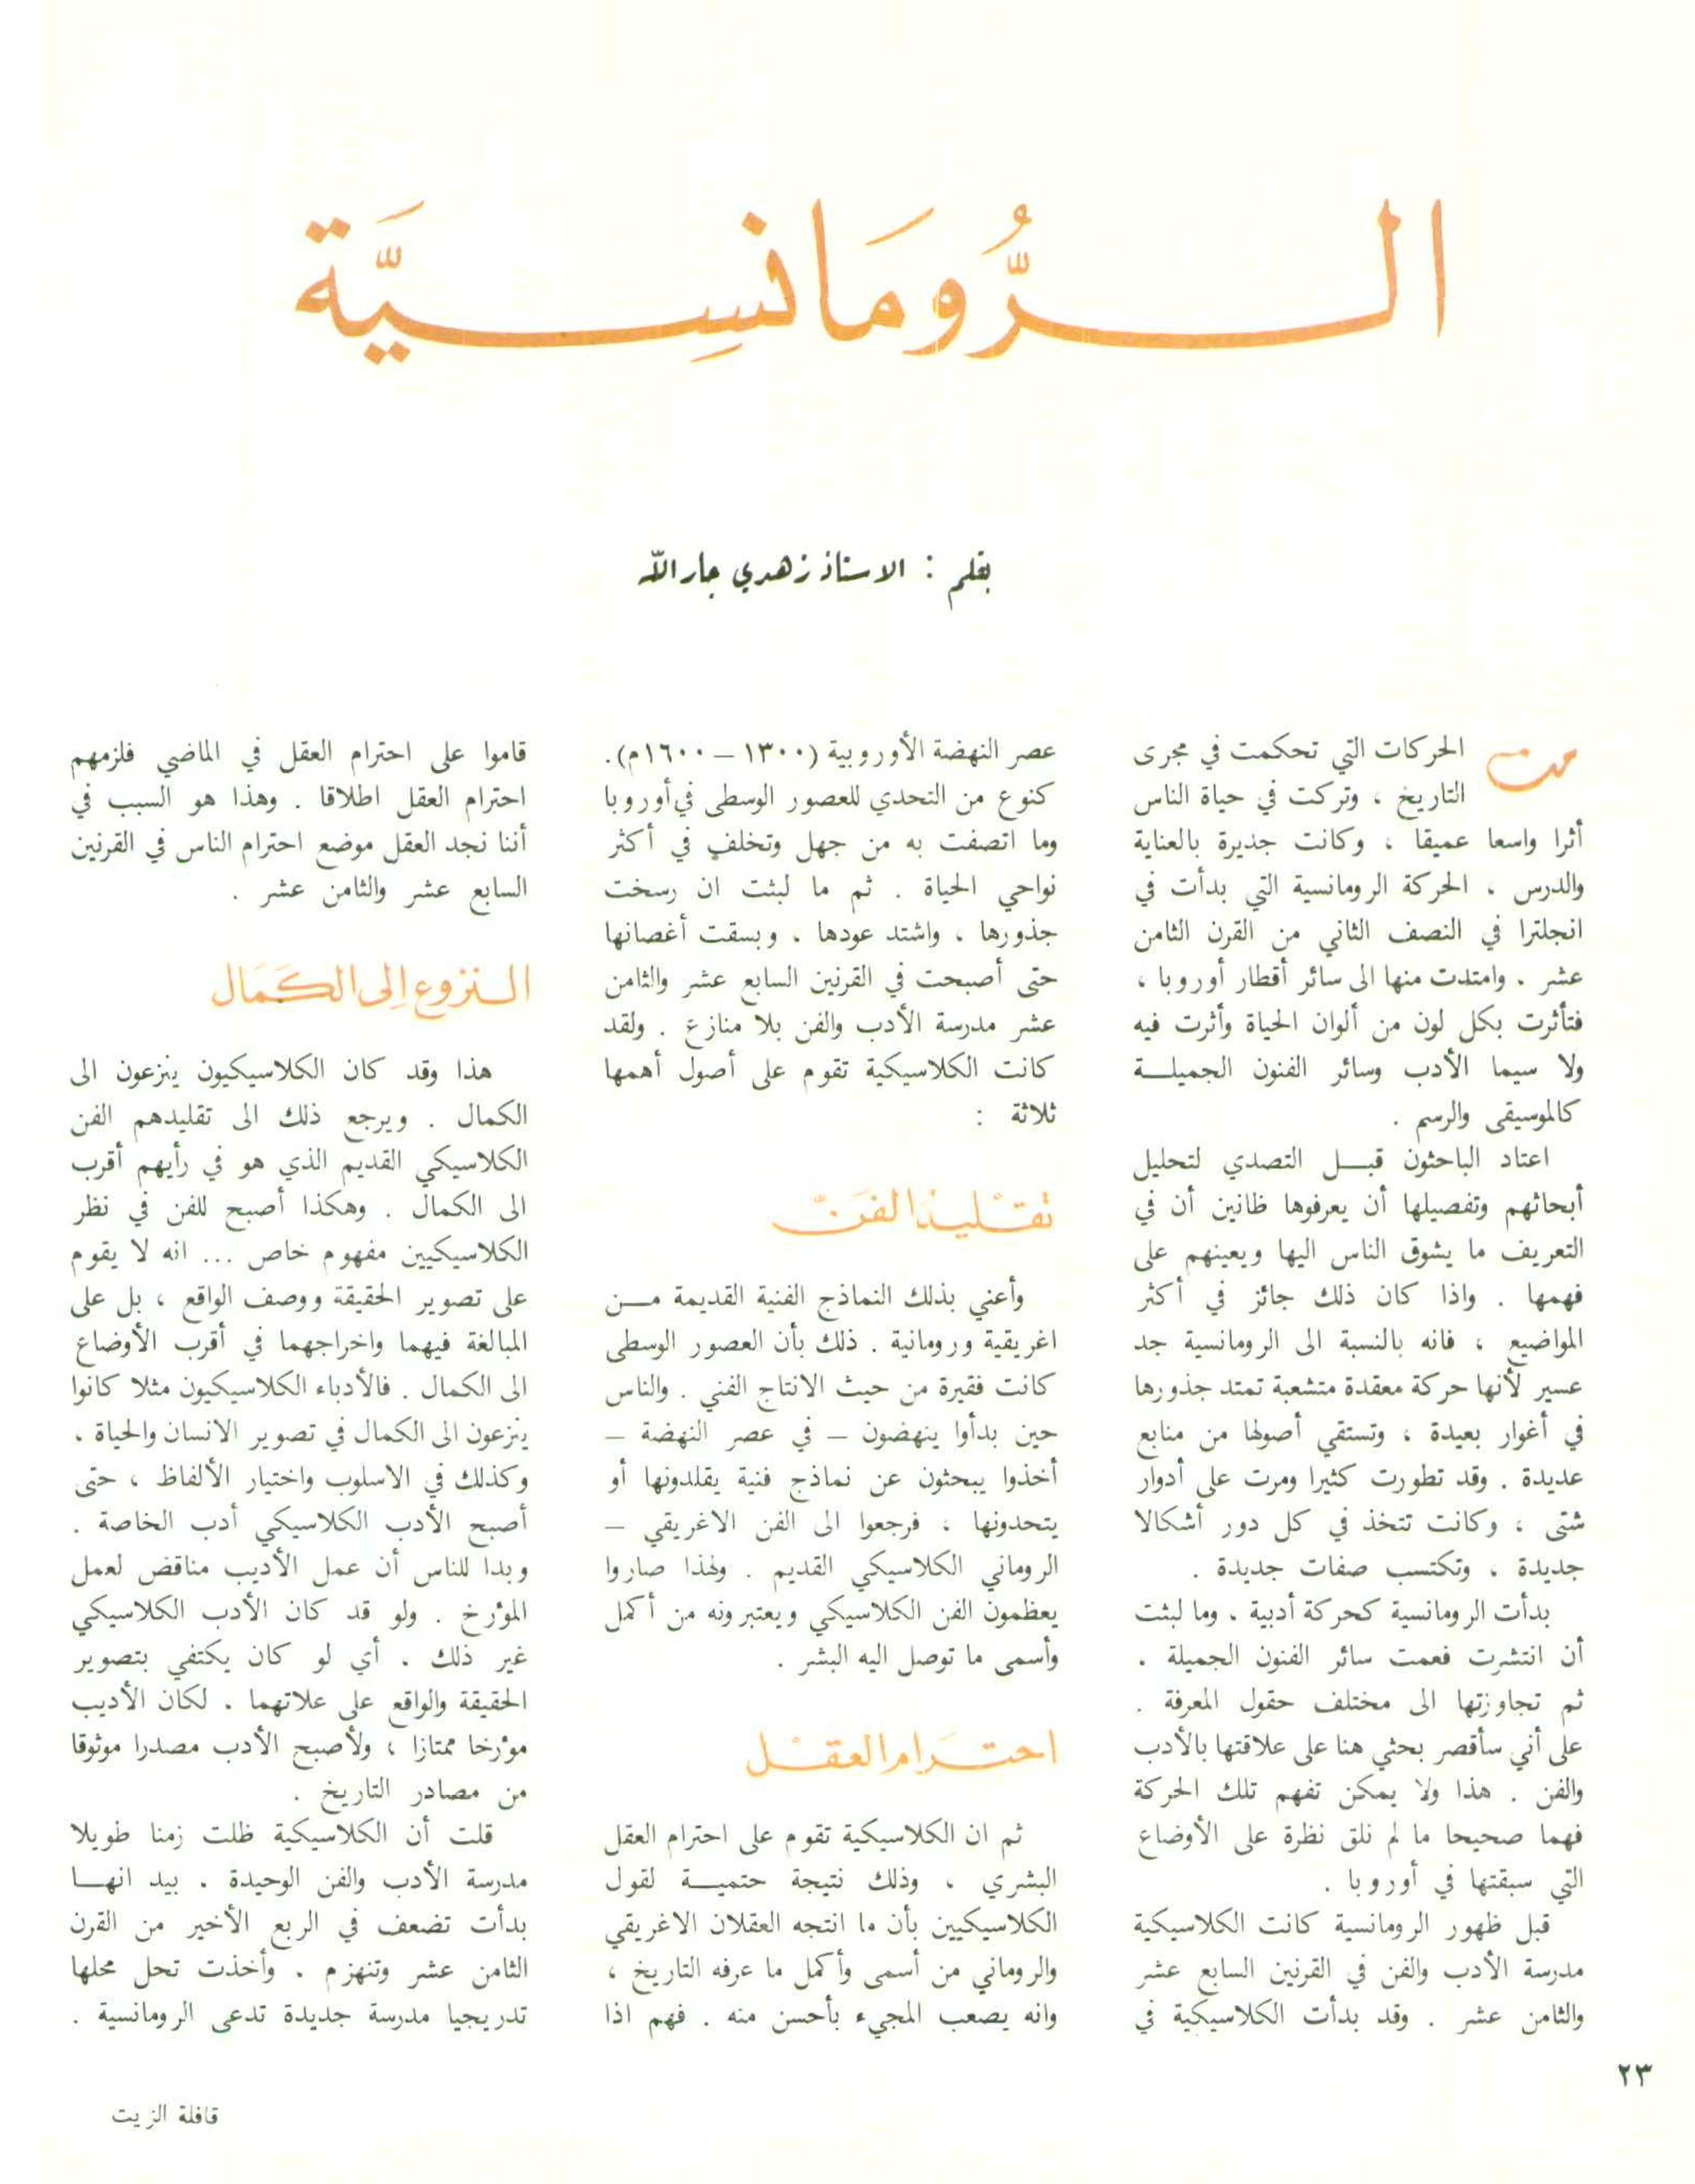 الرُّومَانسِيَّة
بقلم : الاستاذ زهدي جار الله
من الحركات التي تحكمت في مجرى
التاريخ ، وتركت في حياة الناس
أثرا واسعا عميقا ، وكانت جديرة بالعناية
والدرس ، الحركة الرومانسية التي بدأت في
انجلترا في النصف الثاني من القرن الثامن
عشر . وامتدت منها الى سائر أقطار أوروبا ،
فتأثرت بكل لون من ألوان الحياة وأثرت فيه
ولا سيما الأدب وسائر الفنون الجميلة
كالموسيقى والرسم .
اعتاد الباحثون قبل التصدي لتحليل
أبحاثهم وتفصيلها أن يعرفوها ظانين أن في
التعريف ما يشوق الناس اليها ويعينهم على
فهمها . واذا كان ذلك جائز في أكثر
المواضيع ، فانه بالنسبة الى الرومانسية جد
عسير لأنها حركة معقدة متشعبة تمتد جذورها
في أغوار بعيدة ، وتستقي أصولها من منابع
عديدة . وقد تطورت كثيرا ومرت على أدوار
شتى ، وكانت تتخذ في كل دور أشكالا
جديدة ، وتكتسب صفات جديدة .
بدأت الرومانسية كحركة أدبية ، وما لبثت
أن انتشرت فعمت سائر الفنون الجميلة .
ثم تجاوزتها الى مختلف حقول المعرفة .
على أني سأقصر بحثي هنا على علاقتها بالأدب
والفن . هذا ولا يمكن تفهم تلك الحركة
فهما صحيحا ما لم نلق نظرة على الأوضاع
التي سبقتها في أوروبا .
قبل ظهور الرومانسية كانت الكلاسيكية
مدرسة الأدب والفن في القرنين السابع عشر
والثامن عشر . وقد بدأت الكلاسيكية في
عصر النهضة الأوروبية (١٣٠٠ – ١٦٠٠م).
كنوع من التحدي للعصور الوسطى في أوروبا
وما اتصفت به من جهل وتخلف في أكثر
نواحي الحياة . ثم ما لبثت ان رسخت
جذورها ، واشتد عودها ، وبسقت أغصانها
حتى أصبحت في القرنين السابع عشر والثامن
عشر مدرسة الأدب والفن بلا منازع . ولقد
كانت الكلاسيكية تقوم على أصول أهمها
ثلاثة :
تقْليد الفَنّ
وأعني بذلك النماذج الفنية القديمة من
اغريقية ورومانية . ذلك بأن العصور الوسطى
كانت فقيرة من حيث الانتاج الفني . والناس
حين بدأوا ينهضون – في عصر النهضة –
أخذوا يبحثون عن نماذج فنية يقلدونها أو
يتحدونها ، فرجعوا الى الفن الاغريقي –
الروماني الكلاسيكي القديم . ولهذا صاروا
يعظمون الفن الكلاسيكي ويعتبرونه من أكمل
وأسمى ما توصل اليه البشر .
احتَرام العقْل
ثم ان الكلاسيكية تقوم على احترام العقل
البشري ، وذلك نتيجة حتمية لقول
الكلاسيكيين بأن ما انتجه العقلان الاغريقي
والروماني من أسمى وأكمل ما عرفه التاريخ ،
وانه يصعب المجيء بأحسن منه . فهم اذا
قاموا على احترام العقل في الماضي فلزمهم
احترام العقل اطلاقا . وهذا هو السبب في
أننا نجد العقل موضع احترام الناس في القرنين
السابع عشر والثامن عشر .
النزوع إلى الكَمَال
هذا وقد كان الكلاسيكيون ينزعون الى
الكمال . ويرجع ذلك الى تقليدهم الفن
الكلاسيكي القديم الذي هو في رأيهم أقرب
الى الكمال . وهكذا أصبح للفن في نظر
الكلاسيكيين مفهوم خاص ... انه لا يقوم
على تصوير الحقيقة ووصف الواقع ، بل على
المبالغة فيهما واخراجهما في أقرب الأوضاع
الى الكمال . فالأدباء الكلاسيكيون مثلا كانوا
ينزعون الى الكمال في تصوير الانسان والحياة .
وكذلك في الاسلوب واختيار الألفاظ ، حتى
أصبح الأدب الكلاسيكي أدب الخاصة .
وبدا للناس أن عمل الأديب مناقض لعمل
المؤرخ . ولو قد كان الأدب الكلاسيكي
غير ذلك . أي لو كان يكتفي بتصوير
الحقيقة والواقع على علاتهما . لكان الأديب
مؤرخا ممتازا ، ولأصبح الأدب مصدرا موثوقا
من مصادر التاريخ .
قلت أن الكلاسيكية ظلت زمنا طويلا
مدرسة الأدب والفن الوحيدة . بيد انها
بدأت تضعف في الربع الأخير من القرن
الثامن عشر وتنهزم . وأخذت تحل محلها
تدريجيا مدرسة جديدة تدعى الرومانسية .
٢٣
قافلة الزيت